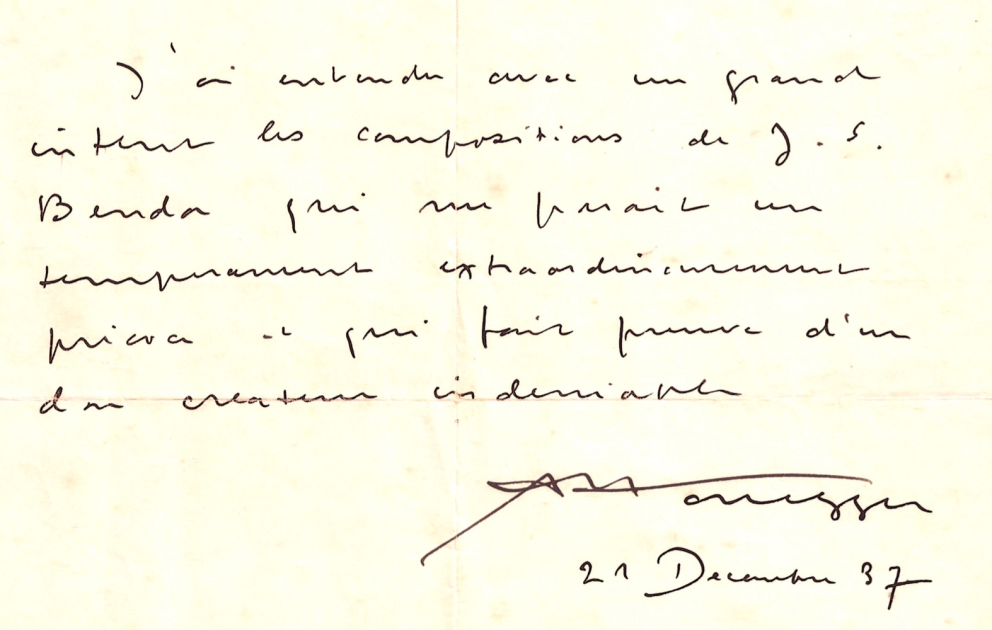 J'ai entendu avec un grand
intérêt les compositions de J. S.
Benda qui me paraît un
temperament extraordinairement
précoce et qui fait preuve d'un
don createur indeniable
AHonegger
21 Decembre 37